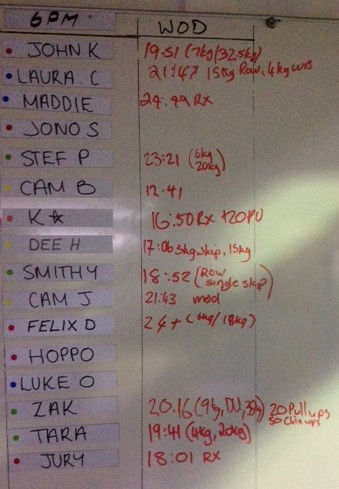 6PM WOD
JOHN K 19:51 (7kg/32.5kg)
LAURA. C 21:47 15kg Row, 4kg WB
MADDIE 24:49 RX
JONO S
STEF P 23:21 (6kg 20kg)
CAM B 12:41
K☆ 16:50 RX +20PU
DEE H 17:06 skip, 15kg
SMITHY 18:52 (Row single skip)
CAM J 21:43 mod
FELIX D 24+ (6kg/18kg)
HOPPO
LUKE O
ZAK 20.16 (9kg, DU, 35kg) 20 Pull ups 50 Chin ups
TARA 19:41 (4kg, 20kg)
JURY 18:01 RX